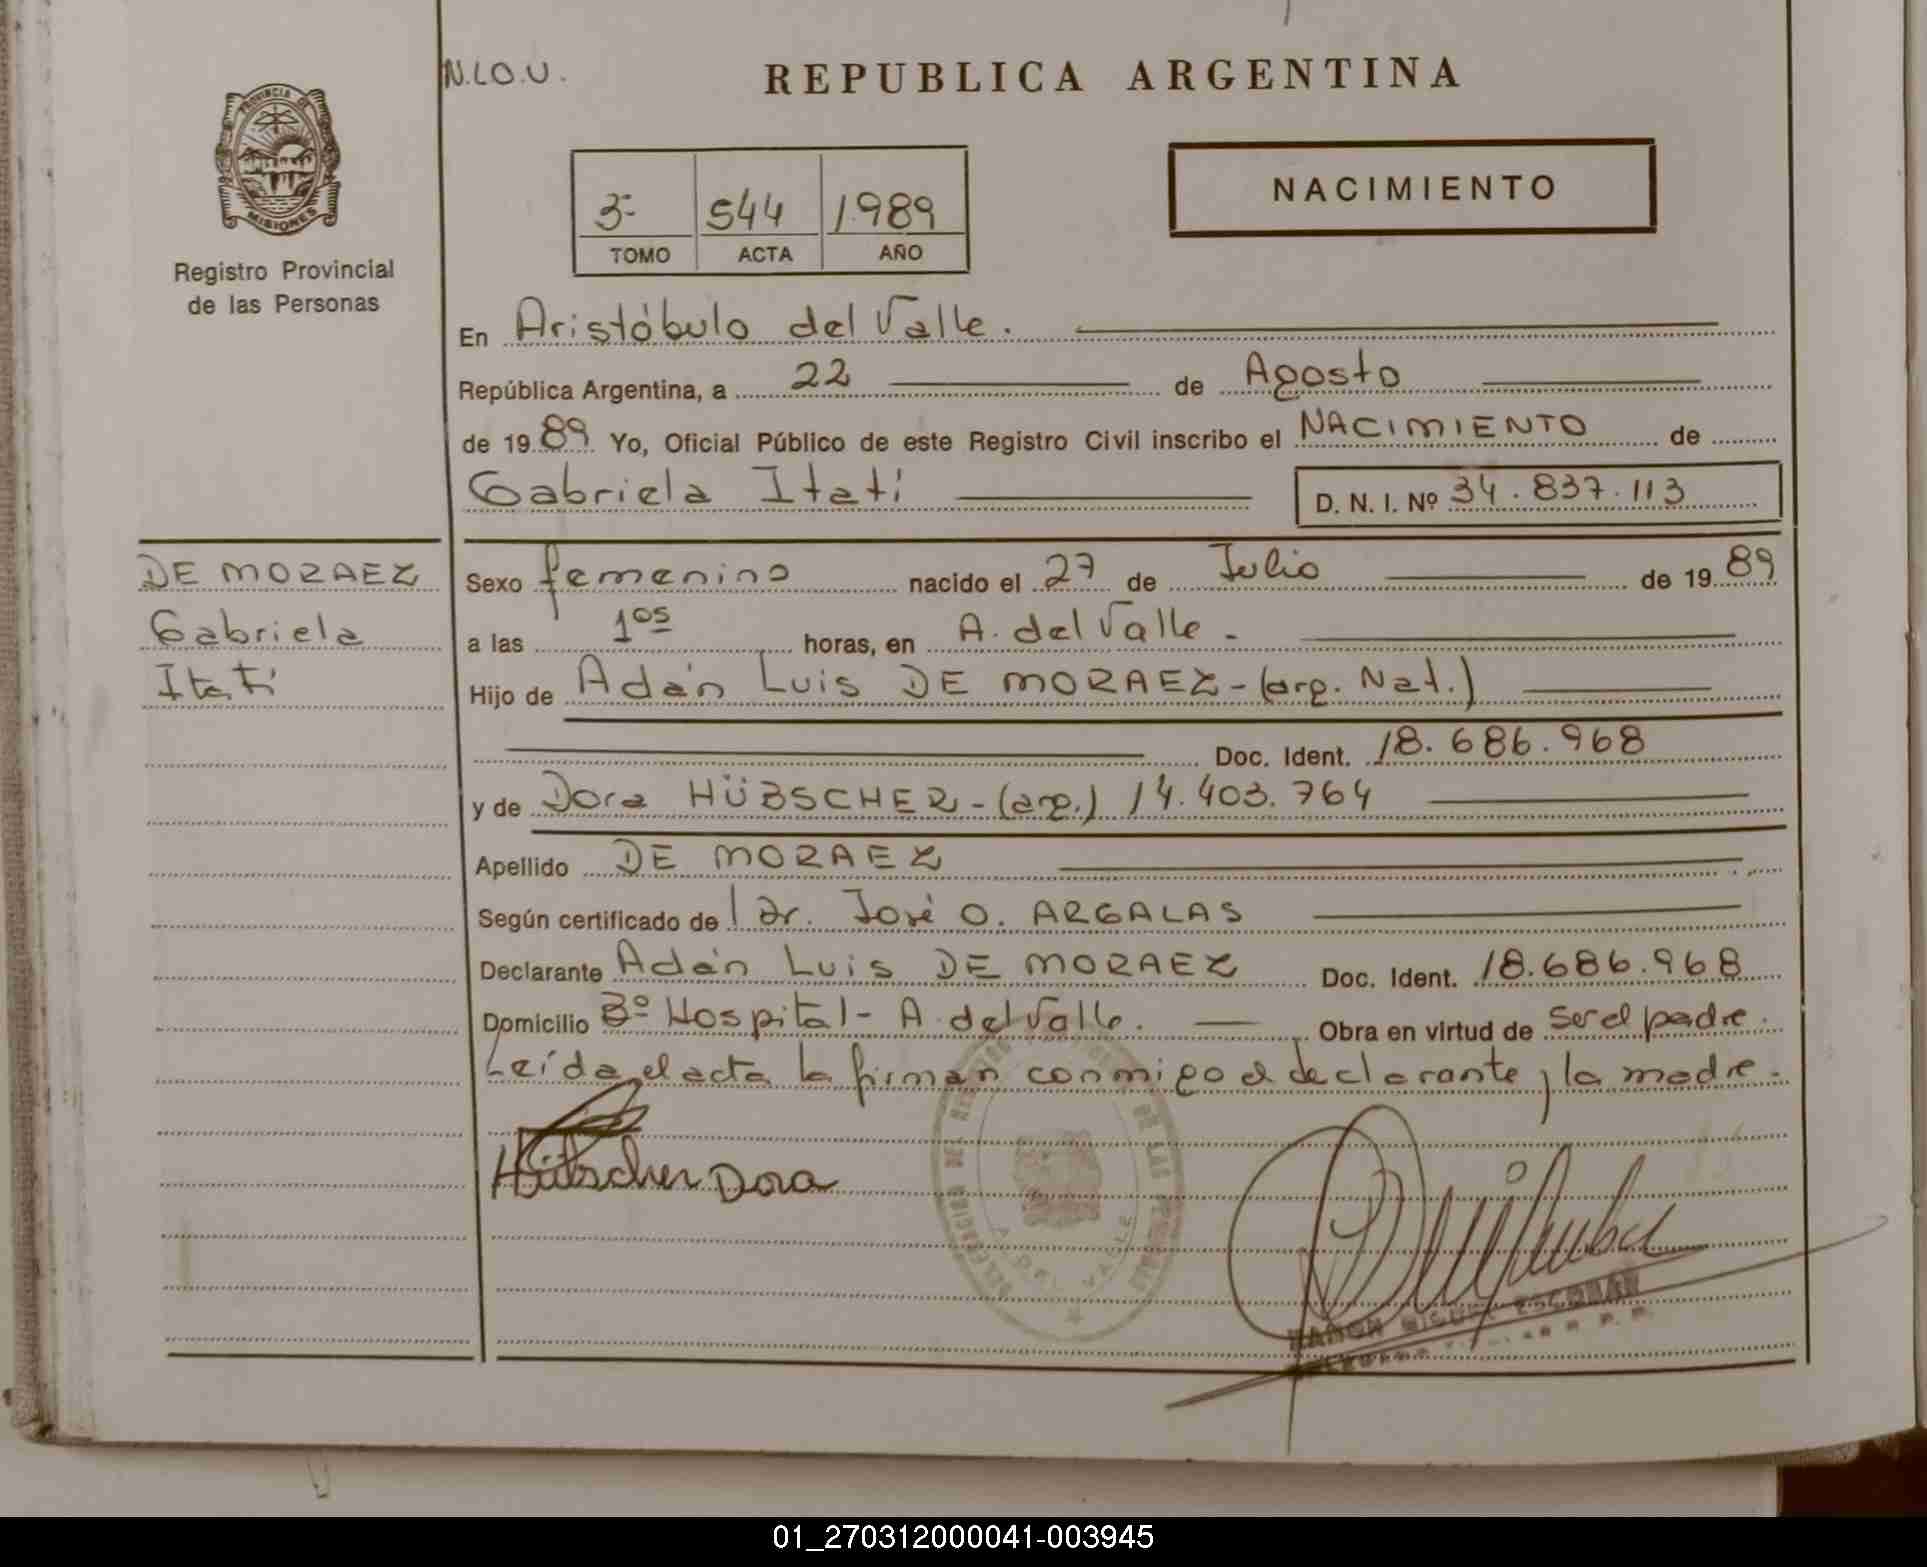 N.LO.U.
REPUBLICA ARGENTINA
PROVINCIA DE
MISIONES
Registro Provincial
de las Personas
NACIMIENTO
3- 544 1989
TOMO ACTA AÑO
En Aristóbulo del Valle.
República Argentina, a 22 de Agosto
de 1989 Yo, Oficial Público de este Registro Civil inscribo el NACIMIENTO de
Gabriela Itatí D. N. I. Nº 34.837.113
DE MORAEZ
Gabriela
Itatí
Sexo femenino nacido el 27 de Julio de 1989
a las 1 05 horas, en A. del Valle.
Hijo de Adán Luis DE MORAEZ - (arg. Nat.)
Doc. Ident. 18.686.968
y de Dora HÜBSCHER - (arg.) 14.403.764
Apellido DE MORAEZ
Según certificado de Dr. José O. ARGALAS
Declarante Adán Luis DE MORAEZ Doc. Ident. 18.686.968
Domicilio Bº Hospital - A. del Valle. Obra en virtud de ser el padre.
Leída el acta la firman conmigo el declarante y la madre.
Hübscher Dora
DE LAS
A. DEL VALLE
RAMON MIGUEL ESCOBAR
01_270312000041-003945